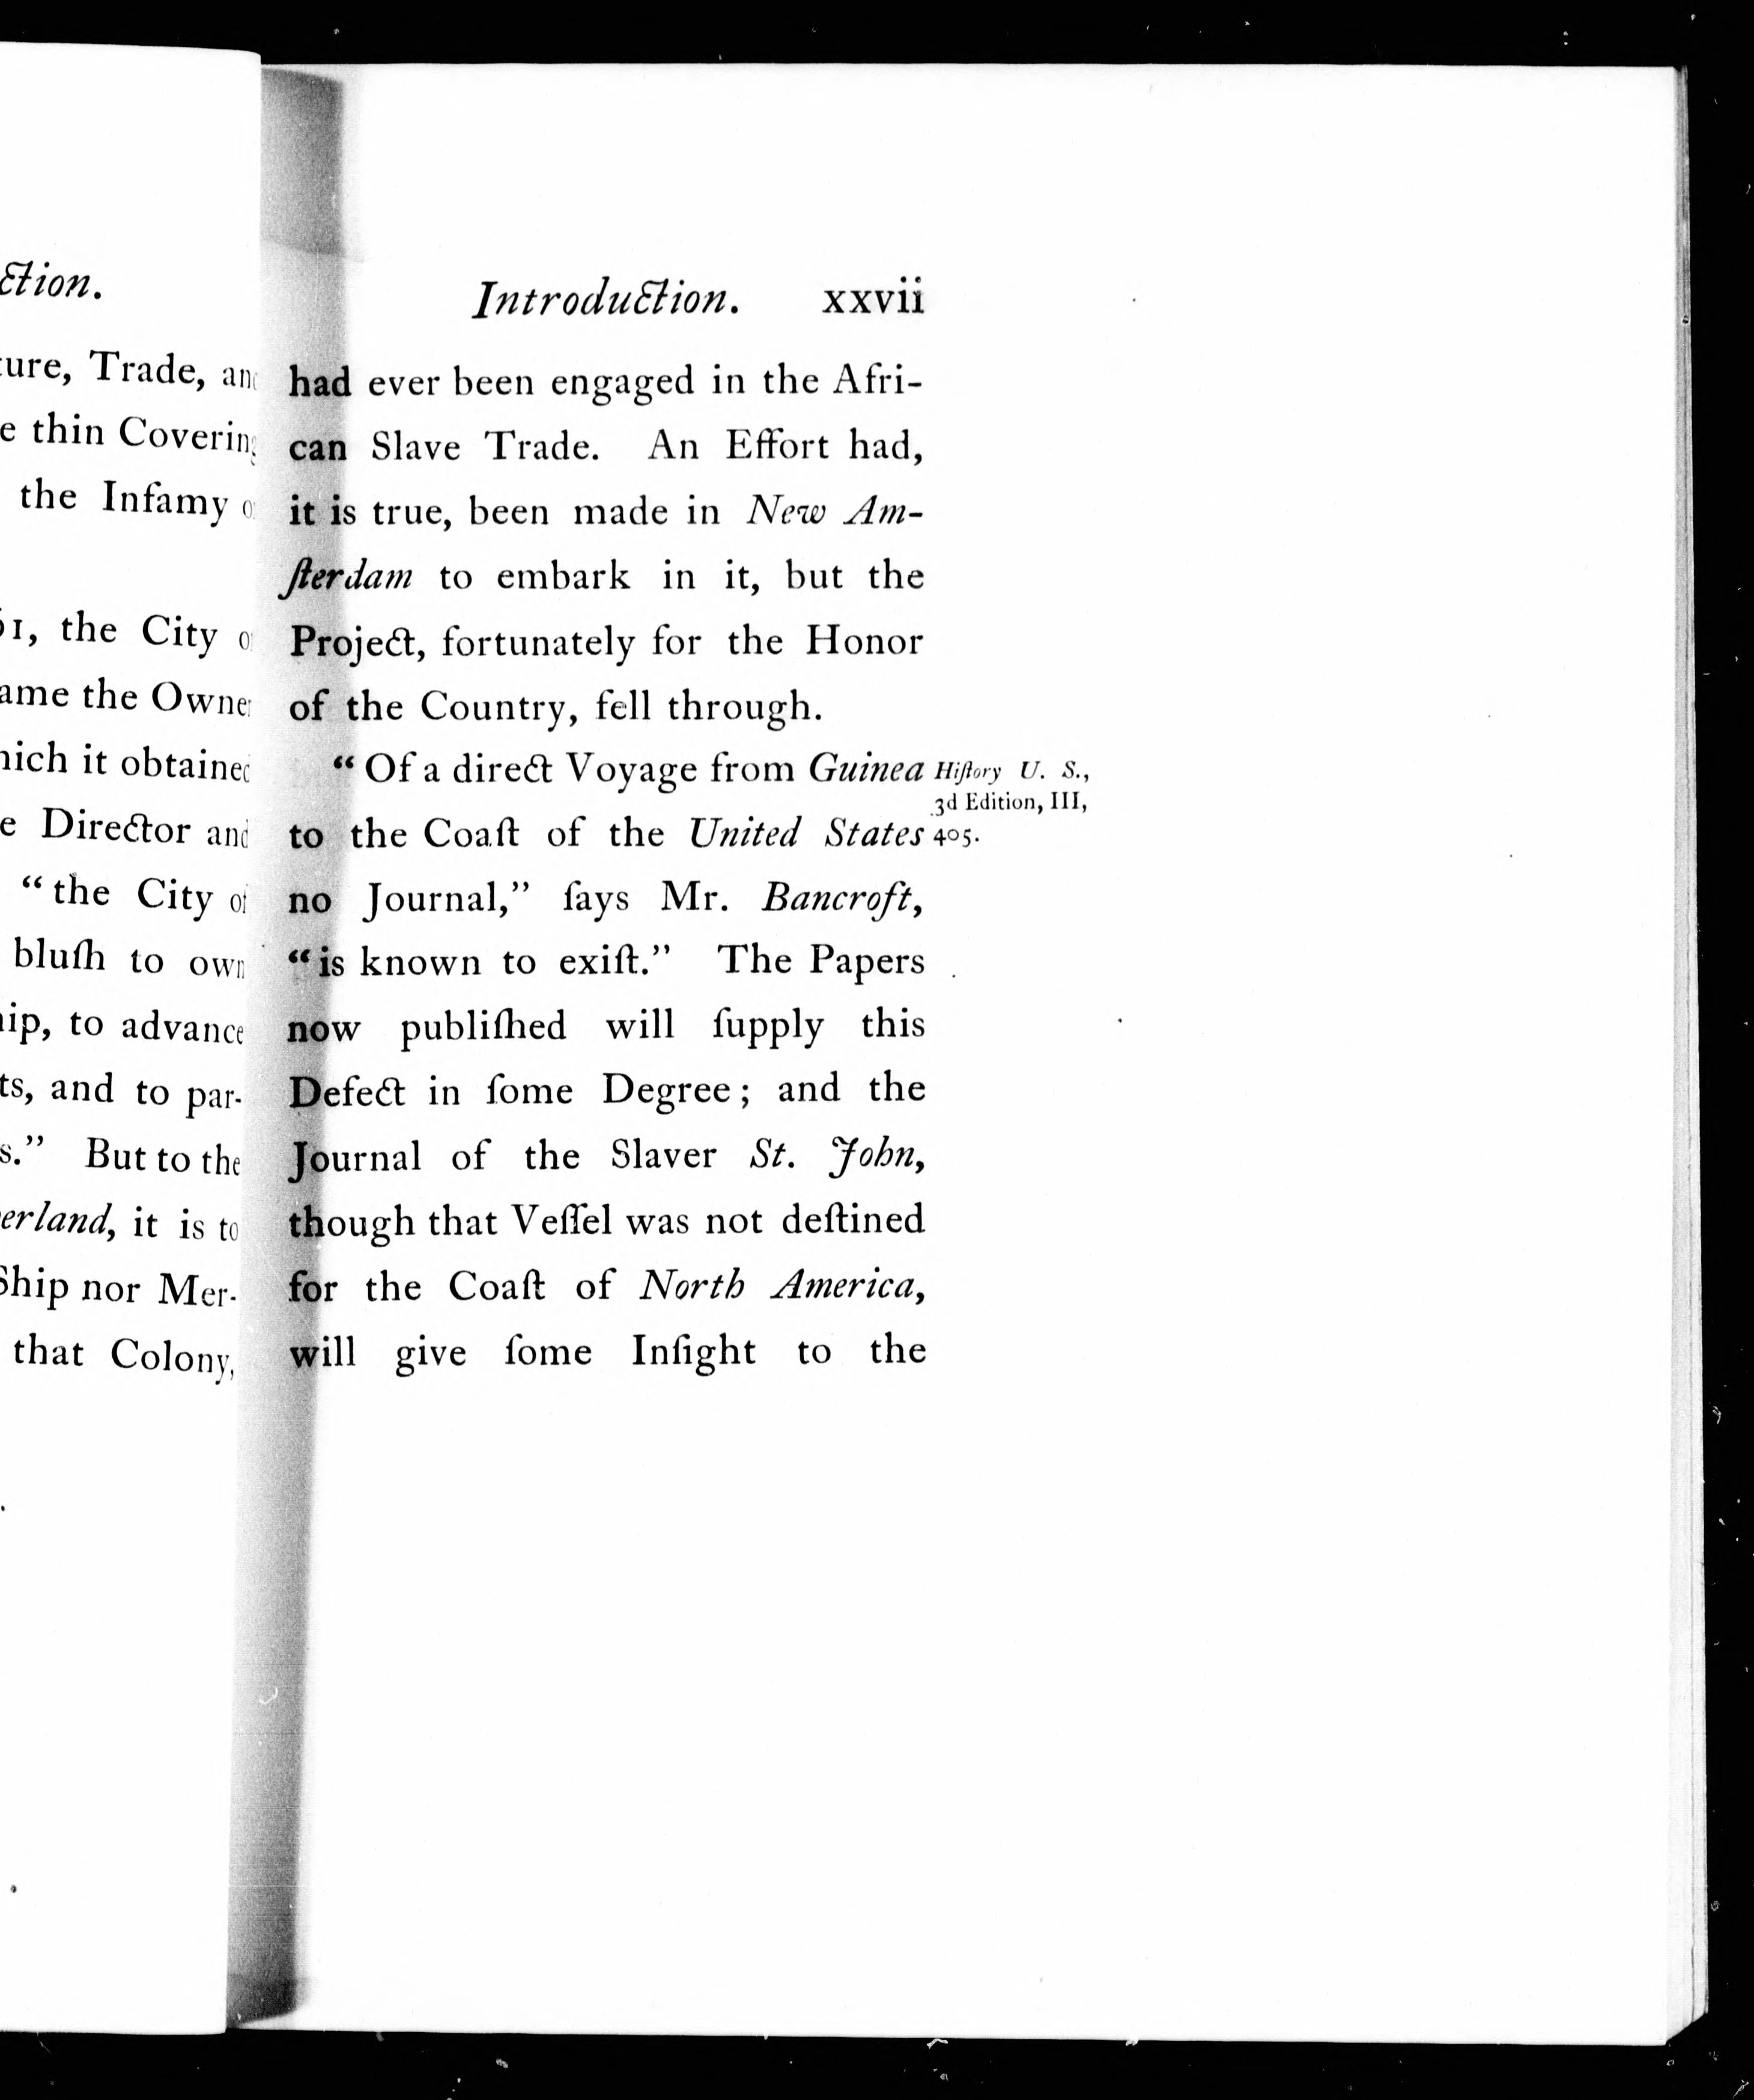 ction.
ture, Trade, and
e thin Covering
the Infamy
61, the City
ame the Owner
hich it obtained
e Director and
“the City of
bluſh to own
hip, to advance
ts, and to par-
s.” But to the
erland, it is to
Ship nor Mer-
that Colony,
Introduction. xxvii
had ever been engaged in the Afri-
can Slave Trade. An Effort had,
it is true, been made in New Am-
ſterdam to embark in it, but the
Project, fortunately for the Honor
of the Country, fell through.
“Of a direct Voyage from Guinea
to the Coaſt of the United States
no Journal,” ſays Mr. Bancroft,
“is known to exiſt.” The Papers
now publiſhed will ſupply this
Defect in ſome Degree; and the
Journal of the Slaver St. John,
though that Veſſel was not deſtined
for the Coaſt of North America,
will give ſome Inſight to the
Hiſtory U. S.,
3d Edition, III,
405.